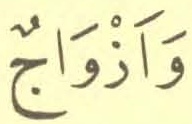 وَاَزْوَاجٌ